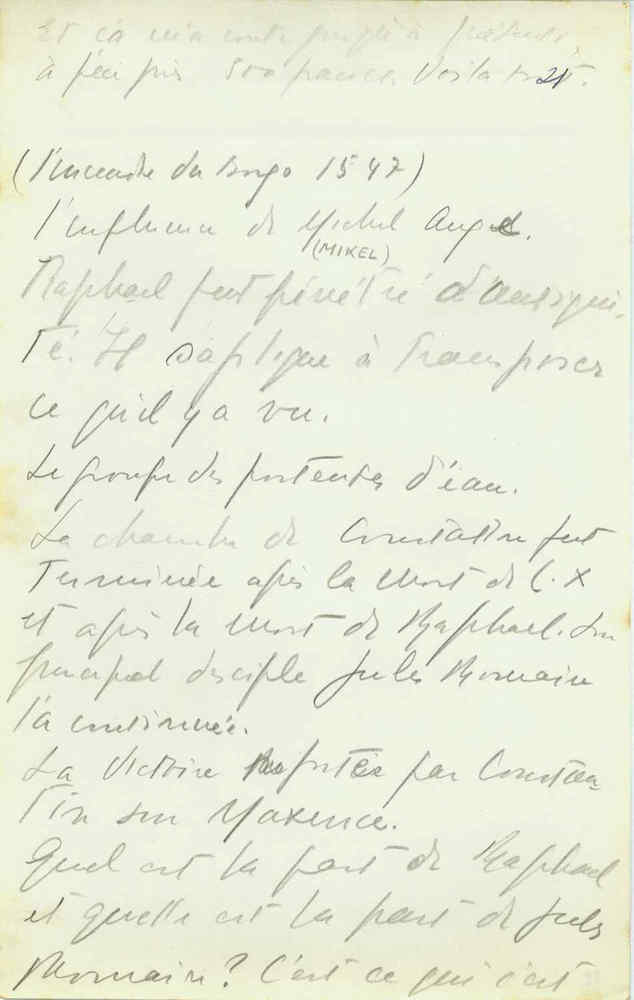 Et ça m'a coûté jusqu'à présent
à peu près 500 francs. Voilà tout.
(l'incendie du Borgo 1547)
l'influence de Michel Ange.
(MIKEL)
Raphael fut pénétré d'antiqui-
té. Il s'aplique à transposer
ce qu'il y a vu.
Le groupe des porteuses d'eau.
La chambre de Constantin fut
terminée après la mort de L. X
et après la mort de Raphael. Son
principal disciple Jules Romain
l'a continuée.
La victoire portée par Constan-
tin sur Maxence.
Quel est la part de Raphael
et quelle est la part de Jules
Romain? C'est ce qui s'est